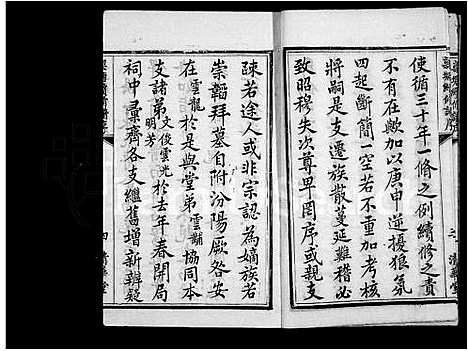 使循三十年一修之例續修之責
不有在歟加以庚申逆擾狼氛
四起斷簡一空若不重加考核
將嗣是支遷族散蔓延難稽必
致昭穆失次尊卑罔序或親支
疎若途人或非宗認為嫡族若
崇韜拜墓自附汾陽厥咎各安
在雲龍於是與堂弟雲黼協同本
支諸弟文俊雲光明芳於去年春開局
祠中彙齊各支繼舊增新辨疑
四